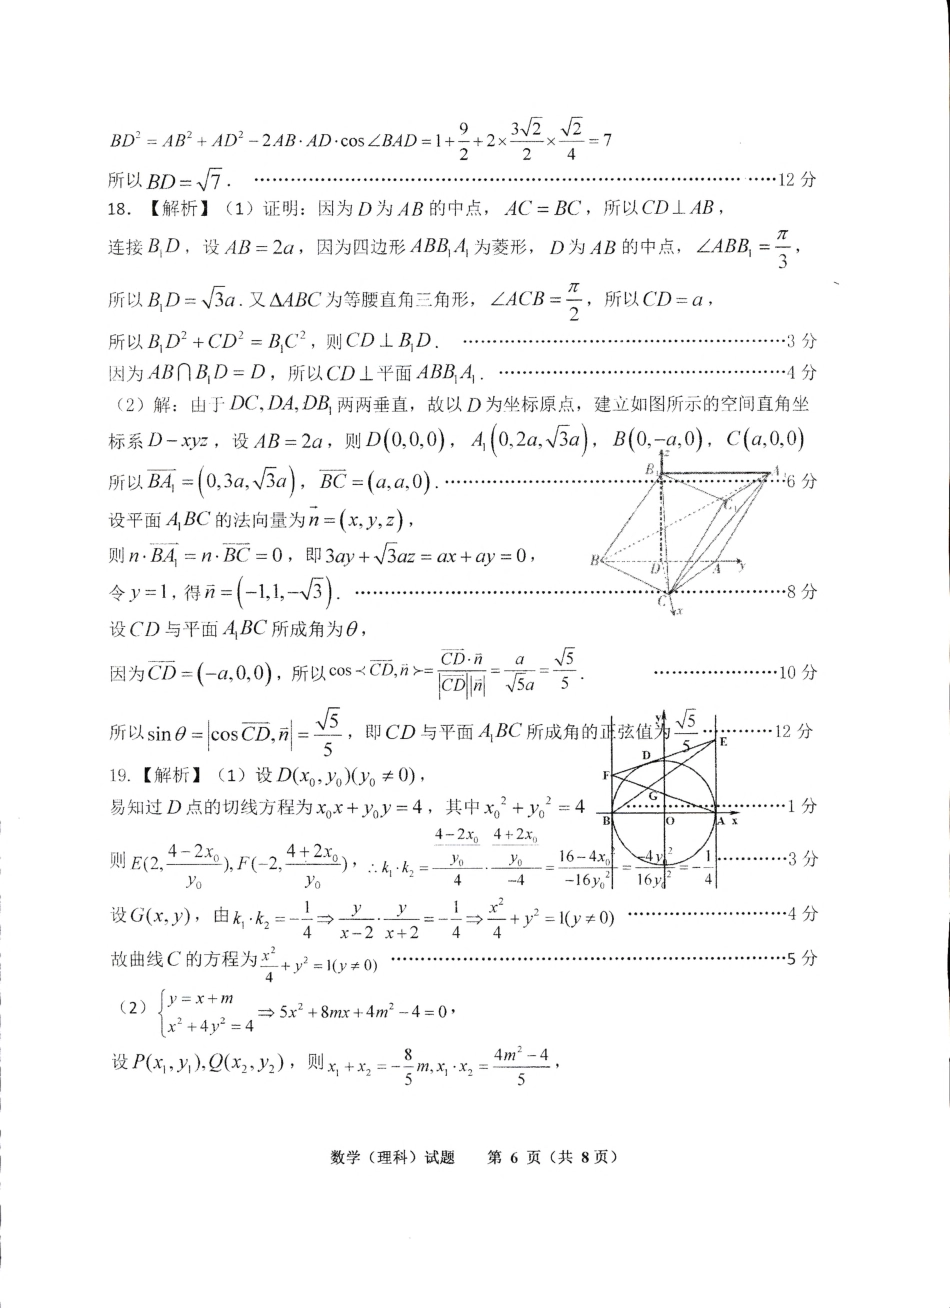 BD² = AB² + AD² − 2AB·AD·cos∠BAD = 1 + 9/2 + 2×(3√2/2)×(√2/4) = 7
所以 BD = √7. ……………………12 分
18. 【解析】（1）证明：因为 D 为 AB 的中点，AC = BC，所以 CD⊥AB，
连接 B₁D，设 AB = 2a，因为四边形 ABB₁A₁ 为菱形，D 为 AB 的中点，∠ABB₁ = π/3，
所以 B₁D = √3a. 又△ABC 为等腰直角三角形，∠ACB = π/2，所以 CD = a，
所以 B₁D² + CD² = B₁C²，则 CD⊥B₁D. ……………………3 分
因为 AB∩B₁D = D，所以 CD⊥平面 ABB₁A₁. ……………………4 分
（2）解：由于 DC, DA, DB₁ 两两垂直，故以 D 为坐标原点，建立如图所示的空间直角坐
标系 D−xyz，设 AB = 2a，则 D(0,0,0)，A₁(0,2a,√3a)，B(0,−a,0)，C(a,0,0)
所以 BA₁ = (0,3a,√3a)，BC = (a,a,0). ……………………6 分
设平面 A₁BC 的法向量为 n = (x,y,z)，
则 n·BA₁ = n·BC = 0，即 3ay + √3az = ax + ay = 0，
令 y = 1，得 n = (−1,1,−√3). ……………………8 分
设 CD 与平面 A₁BC 所成角为 θ，
因为 CD = (−a,0,0)，所以 cos<CD,n> = CD·n/|CD||n| = a/√5a = √5/5. ……………………10 分
所以 sinθ = |cos CD,n| = √5/5，即 CD 与平面 A₁BC 所成角的正弦值为 √5/5 ……………………12 分
19. 【解析】（1）设 D(x₀,y₀)(y₀ ≠ 0)，
易知过 D 点的切线方程为 x₀x + y₀y = 4，其中 x₀² + y₀² = 4 ……………………1 分
则 E(2, (4−2x₀)/y₀), F(−2, (4+2x₀)/y₀)，∴k₁·k₂ = ((4−2x₀)/y₀)/4 · ((4+2x₀)/y₀)/−4 = (16−4x₀²)/(−16y₀²) = −4y₀²/16y₀² = −1/4 ……………………3 分
设 G(x,y)，由 k₁·k₂ = −1/4 ⇒ y/(x−2) · y/(x+2) = −1/4 ⇒ x²/4 + y² = 1(y ≠ 0) ……………………4 分
故曲线 C 的方程为 x²/4 + y² = 1(y ≠ 0) ……………………5 分
（2）{y = x + m
x² + 4y² = 4 ⇒ 5x² + 8mx + 4m² − 4 = 0，
设 P(x₁,y₁),Q(x₂,y₂)，则 x₁ + x₂ = −(8/5)m, x₁·x₂ = (4m²−4)/5，
B₁
z
A₁
C₁
B
D
A
y
C
x
y
E
D
F
G
B
O
A
x
数学（理科）试题 第 6 页（共 8 页）